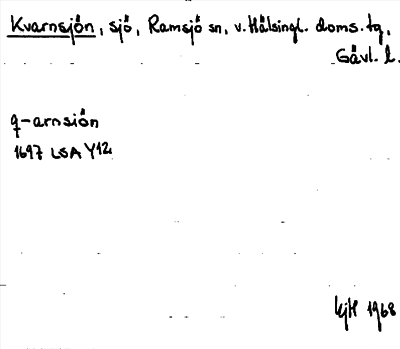 Kvarnsjön, sjö, Ramsjö sn, v. Hälsingl. doms. tg,
Gävl. l.
q-arnsiön
1697 LSA Y12
KjH 1968